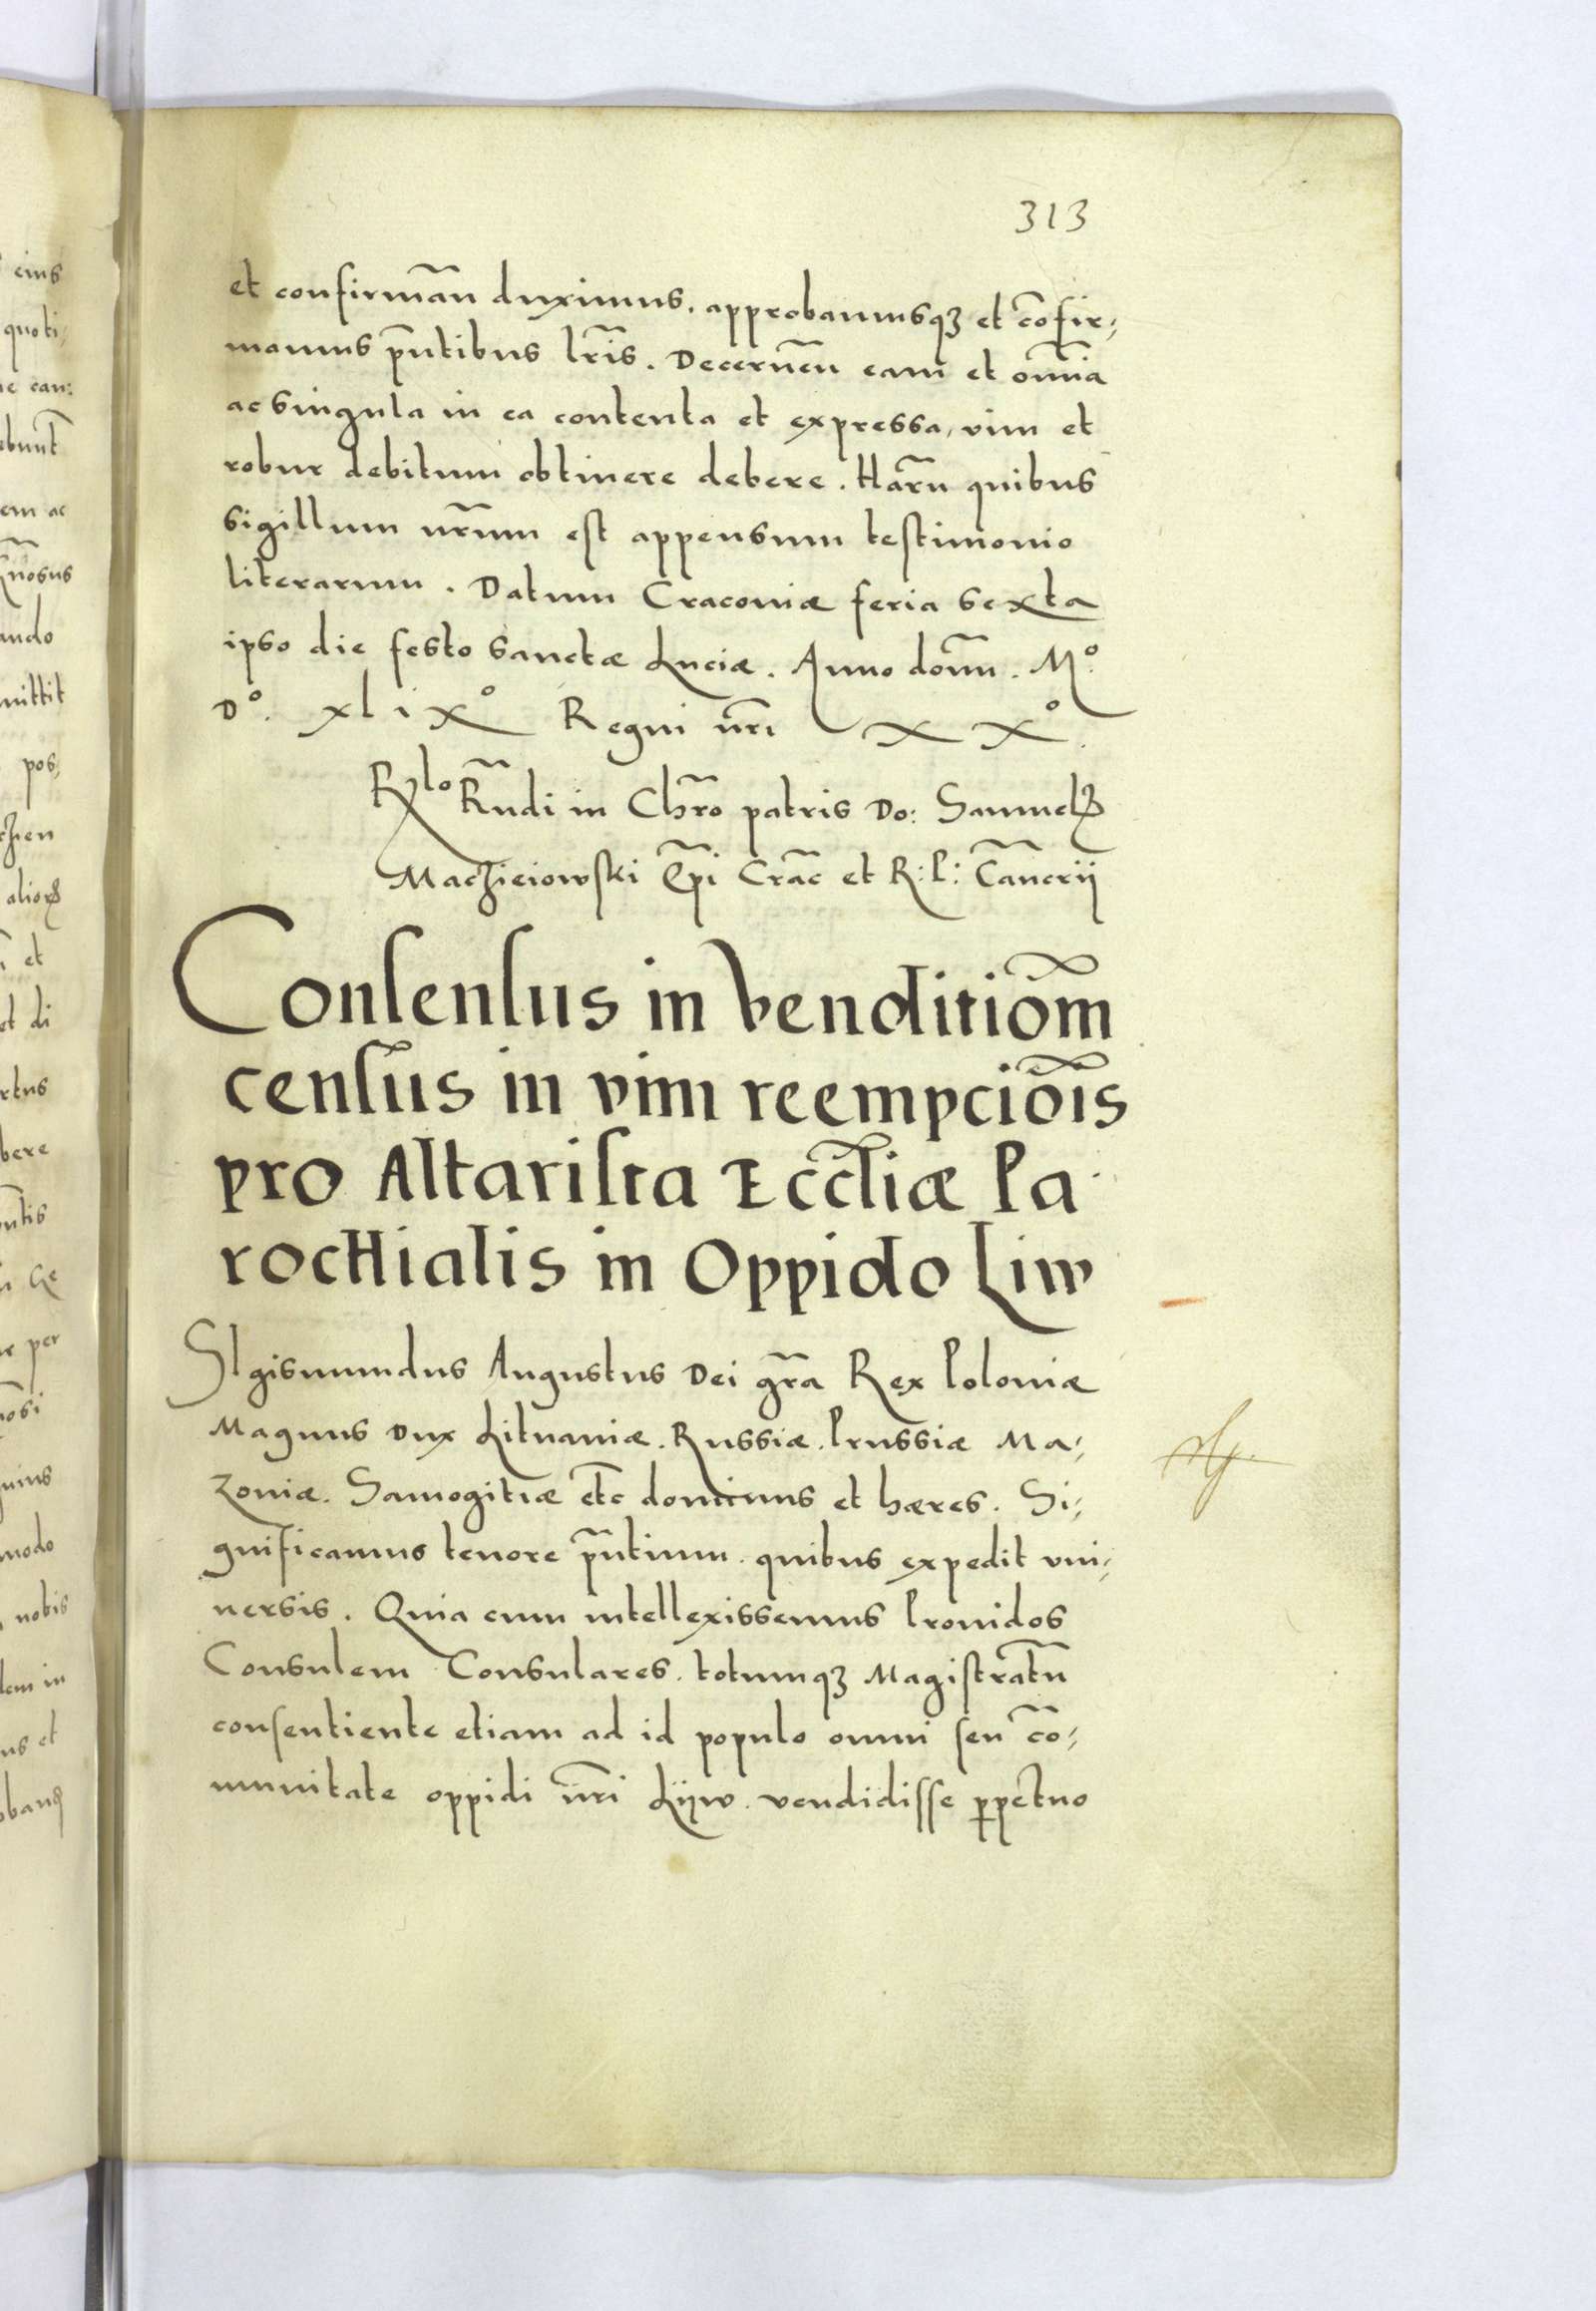 313
et confirmãn duximus. approbamusqꝫ et cõfir⸗
mamus p̃ntibus lr̃is. Decernẽn eam et om̃ia
ac singula in ea contenta et expressa, vim et
robur debitum obtinere debere. Har̃u quibus
sigillum nr̃um est appensum testimonio
literarum. Datum Cracoviæ feria sexta
ipso die festo sanctæ Luciæ. Anno dom̃. Mº.
Dº. xlixº Regni nr̃i xxº.
Rlo Rñdi in Chr̃o patris Do: Samuel
Maczieiowski Ep̃i Crac̃ et R: P: Cañcrii
Consensus in venditiom̃
census in vim reempcioĩs
pro Altarista Eccliæ Pa
rochialis in Oppido Liw
SIgismundus Augustus Dei gr̃a Rex Poloniæ
Magnus Dux Lituaniæ. Russiæ. Prussiæ Ma⸗
zoviæ. Samogitiæ etc̃ dominus et hæres. Si⸗
gnificamus tenore p̃ntium. quibus expedit vni⸗
uersis. Quia cum intellexissemus Prouidos
Consulem Consulares. totumqꝫ Magistratũ
consentiente etiam ad id populo omni seu cõ⸗
munitate oppidi nr̃i Lijw. vendidisse ꝑpetuo
eius
quoti⸗
bunt̃
em ac
mittit
pos⸗
alior
et
et di
bere
per
modo
nobis
dem in
us et